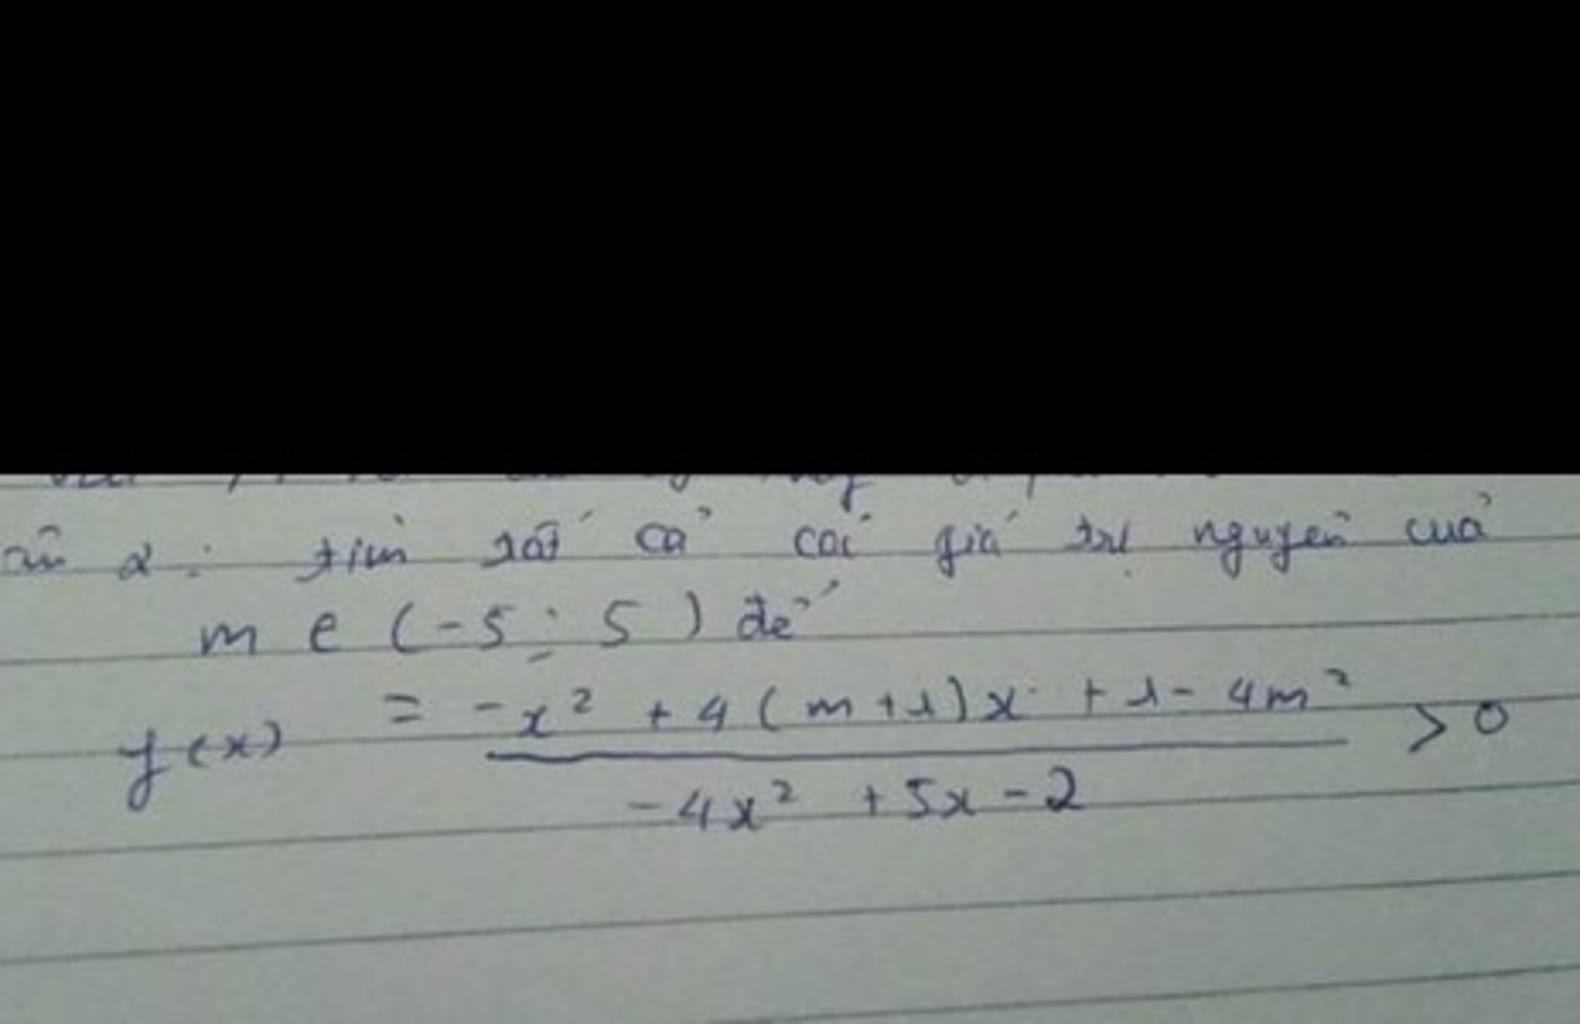 2: tìm tất cả các giá trị nguyên của
m ∈ (-5; 5) để
f(x) = \frac{-x² + 4(m+1)x + 1 - 4m²}{-4x² + 5x - 2} > 0